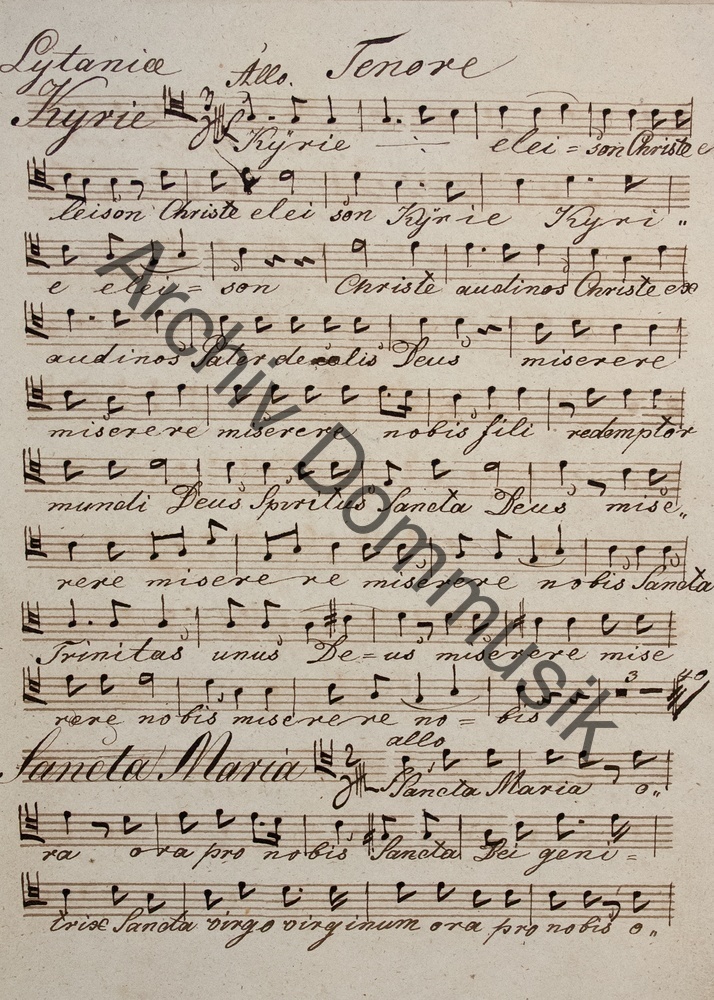 Lytaniæ Allo. Tenore
Kyrie
Kÿrie elei = son Christe e
leison Christe elei son Kÿrie Kyri „
e elei = son Christe audinos Christe ex
audinos Pater de cælis Deus miserere
miserere miserere nobis fili redemptor
mundi Deus Spiritus Sancta Deus mise„
rere misere re miserere nobis Sancta
Trinitas unus De = us miserere mise
rere nobis miserere no = bis
3
Sancta Maria allo
Sancta Maria o„
ra ora pro nobis Sancta Dei geni =
trix Sancta virgo virginum ora pro nobis o„
Archiv Dommusik